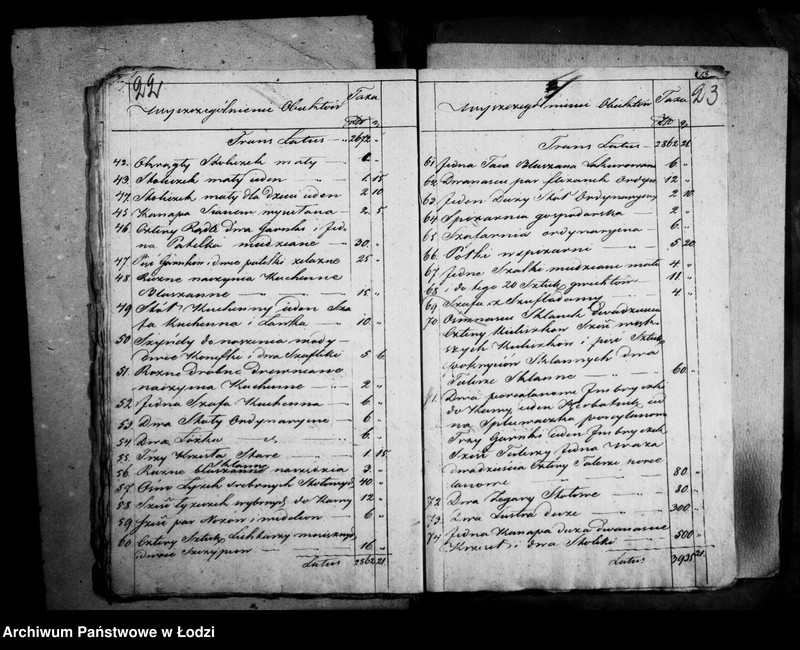 22
Wyszczególnienie Obiektów Taxa
Trans Latus 2692 "
42. Okrągły Stoliczek mały
43. Stoliczek mały jeden 1 15
44. Stoliczek mały dla dzieci jeden 2 10
45 Kanapa Sianem wysłana 2 5
46. Cztery Rądle dwa Garnki i jed
na Patelka miedziane 30 "
47. Pięć Garnków i dwie patelki żelazne 25 "
48. Rózne naczynia Kuchenne
Blaszanne 15 "
49. Stół Kuchenny jeden Sza
fa Kuchenna i Ławka 10 "
50 Szynidy do noszenia wody
dwie Konefki i dwa Szafliki 5 6
51. Rózne drobne drewniane
naczynia Kuchenne 2 "
52. Jedna Szafa Kuchenna 6 "
53 Dwa Stoły Ordynaryine 6 "
54 Dwa Łóżka 6 "
55 Trzy Krzesła Stare 1 15
56 Rózne Szklanne naczynia 3 "
57. Ośm Łyżek srebrnych Stołowych 40 "
58 Sześć łyżeczek srebrnych do Kawy 12 "
59 Sześć par Nożow i widelcow 6 "
60. Cztery Sztuki Lichtarzy mosiężnych
i dwoie Szczypców 16 "
Latus 2862 21
23
Wyszczególnienie Obiektów Taxa
Trans Latus 2862 21
61. Jedna Taca Blaszana Lakierowana 6 "
62. Dwanaście par filiżanek Ordyn 12 "
63. Jeden Duży Stół Ordynaryiny 2 10
64 Spiżarnia gospodarska 2 "
65 Szafarnia ordynaryina 6 "
66. Półki w spiżarni 5 20
67 Jedne Szalki miedziane małe 4 "
68 i do tego 20 Sztuk gwichtów 11 "
69 Szafa z Szufladamy 4 "
70 Ośmnaście Szklanek dwadzieścia
Cztery Kieliszków Sześć więk
szych Kieliszków i pięć Sztuk
pokryciów Szklannych dwa
Talerze Szklanne 60 "
71 Dwa porcelanowe Jmbryczki
do Kawy, jeden Herbatnik je
na Spluwaczka porcelanowa
Trzy Garnki jeden Jmbryczek
Sześć Talerzy jedna Waza
dwadzieścia Cztery Talerze porce
lanowe 80 "
72. Dwa Zegary Stołowe 30 "
73. Dwa Lustra duże 300 "
74 Jedna Kanapa duża dwanaście
Krzeseł i dwa Stoliki 500 "
Latus 3925 21
Archiwum Państwowe w Łodzi